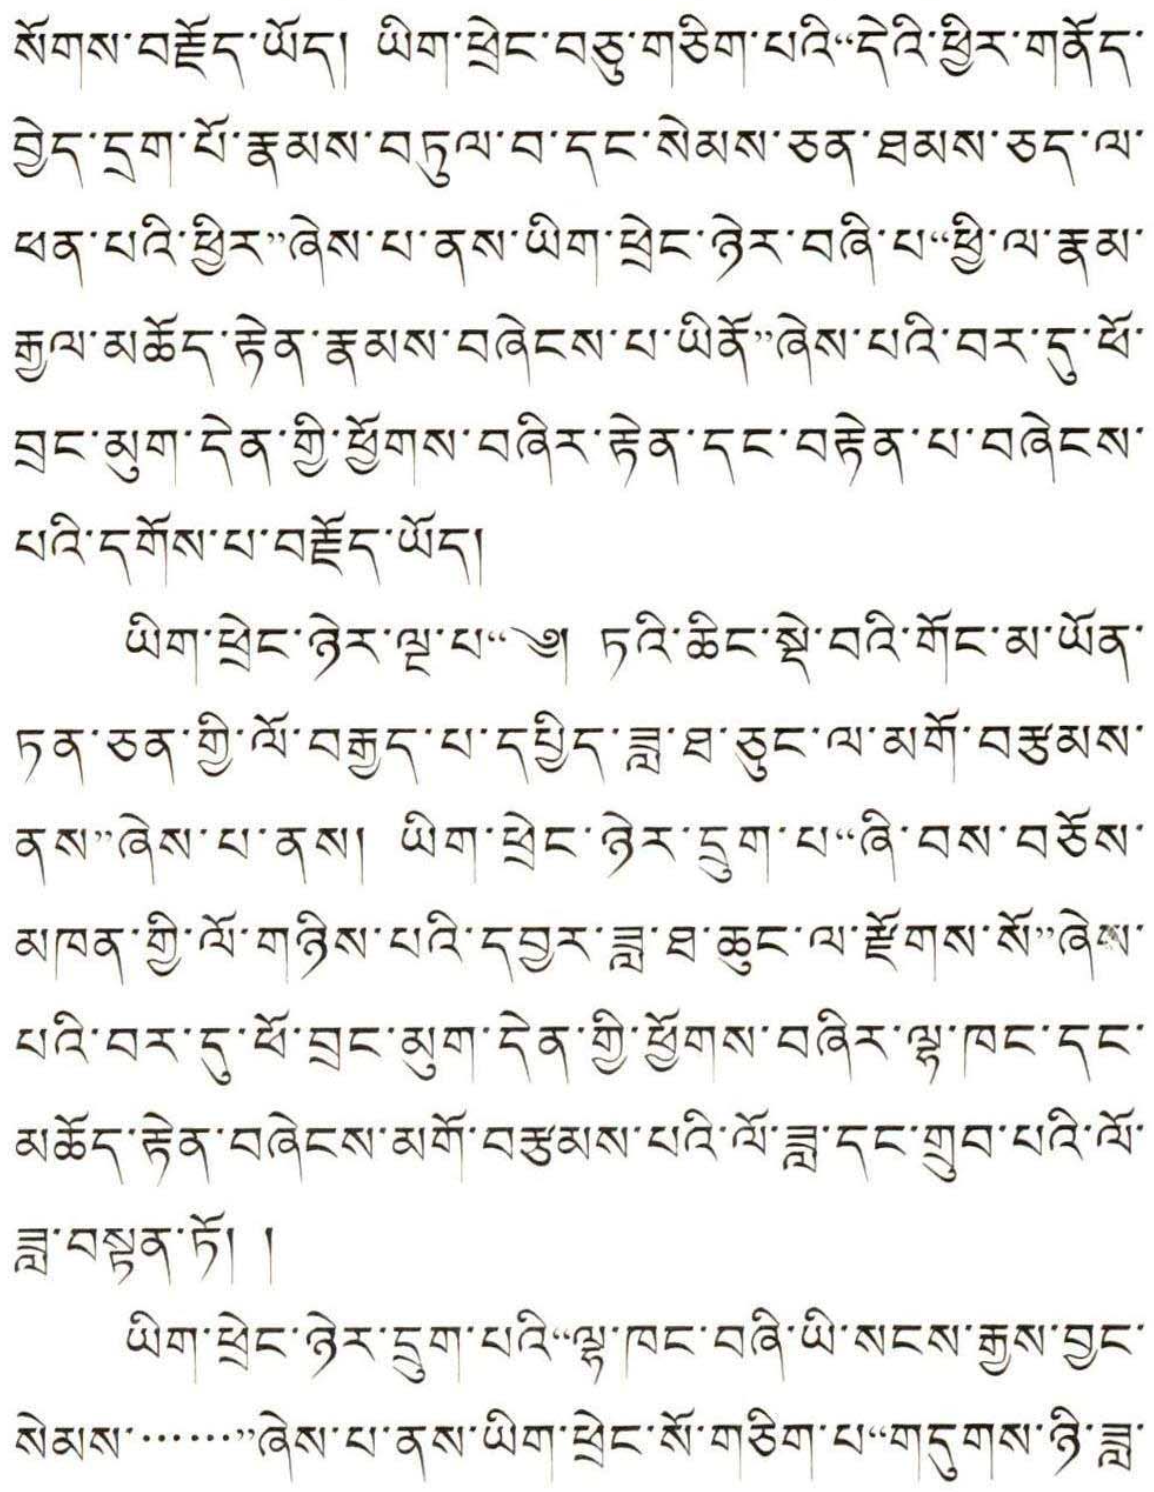 སོགས་བརྗོད་ཡོད། ཡིག་ཕྲེང་བཅུ་གཅིག་པའི“དེའི་ཕྱིར་གནོད་
བྱེད་དྲག་པོ་རྣམས་བཏུལ་བ་དང་སེམས་ཅན་ཐམས་ཅད་ལ་
ཕན་པའི་ཕྱིར”ཞེས་པ་ནས་ཡིག་ཕྲེང་ཉེར་བཞི་པ“ཕྱི་ལ་རྣམ་
རྒྱལ་མཆོད་རྟེན་རྣམས་བཞེངས་པ་ཡིནོ”ཞེས་པའི་བར་དུ་ཕོ་
བྲང་མུག་དེན་གྱི་ཕྱོགས་བཞིར་རྟེན་དང་བརྟེན་པ་བཞེངས་
པའི་དགོས་པ་བརྗོད་ཡོད།
ཡིག་ཕྲེང་ཉེར་ལྔ་པ“༄། ཏའི་ཆིང་སྡེ་བའི་གོང་མ་ཡོན་
ཏན་ཅན་གྱི་ལོ་བརྒྱད་པ་དཔྱིད་ཟླ་ཐ་ཅུང་ལ་མགོ་བརྩམས་
ནས”ཞེས་པ་ནས། ཡིག་ཕྲེང་ཉེར་དྲུག་པ“ཞི་བས་བཅོས་
མཁན་གྱི་ལོ་གཉིས་པའི་དབྱར་ཟླ་ཐ་ཆུང་ལ་རྫོགས་སོ”ཞེས་
པའི་བར་དུ་ཕོ་བྲང་མུག་དེན་གྱི་ཕྱོགས་བཞིར་ལྷ་ཁང་དང་
མཆོད་རྟེན་བཞེངས་མགོ་བརྩམས་པའི་ལོ་ཟླ་དང་གྲུབ་པའི་ལོ་
ཟླ་བསྟན་ཏོ། །
ཡིག་ཕྲེང་ཉེར་དྲུག་པའི“ལྷ་ཁང་བཞི་ཡི་སངས་རྒྱས་བྱང་
སེམས་……”ཞེས་པ་ནས་ཡིག་ཕྲེང་སོ་གཅིག་པ“གདུགས་ཉི་ཟླ་